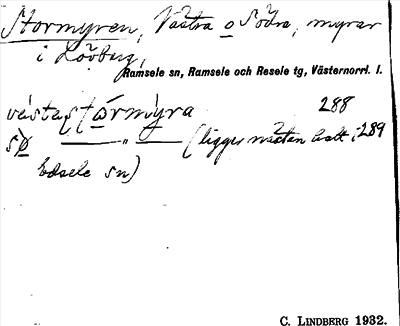 Stormyren, Västra o Södra, myrar
i Lövberg,
Ramsele sn, Ramsele och Resele tg, Västernorrl. l.
västastórmýra 288
sø —— „ —— (ligger nästan helt i 289
Edsele sn)
C. LINDBERG 1932.